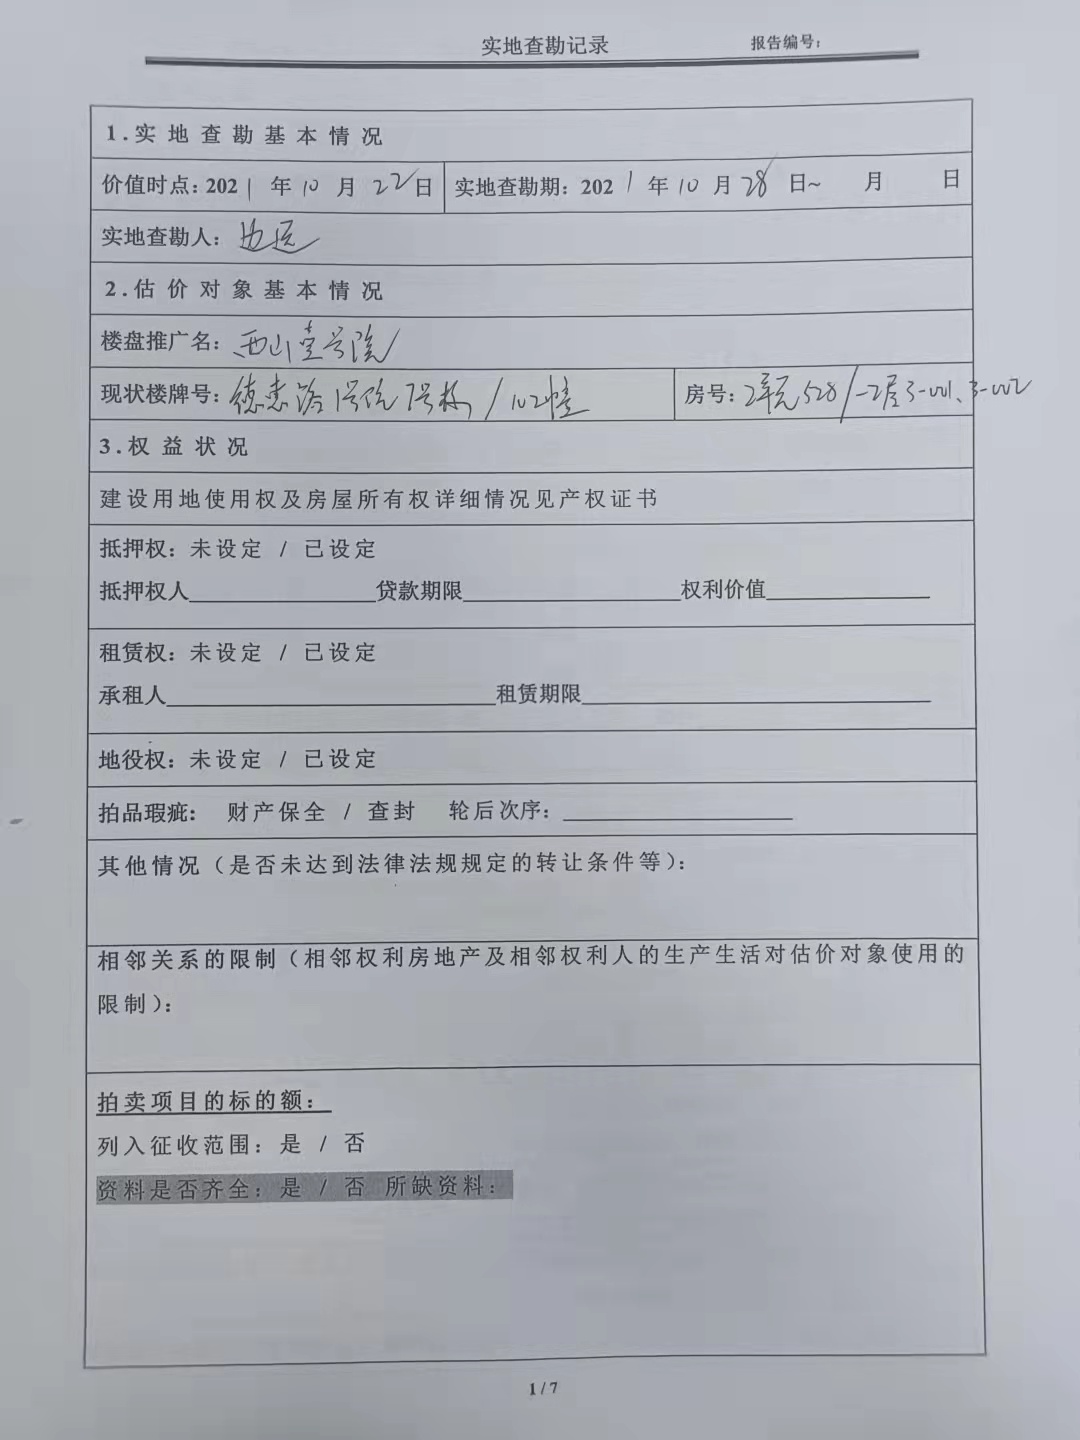 实地查勘记录 报告编号:
1.实地查勘基本情况
价值时点:2021年10月22日 实地查勘期:2021年10月28日~ 月 日
实地查勘人:
2.估价对象基本情况
楼盘推广名:西山壹号院
现状楼牌号:德惠路1号院7号楼/102幢 房号:2单元528/-2层3-001、3-002
3.权益状况
建设用地使用权及房屋所有权详细情况见产权证书
抵押权:未设定 / 已设定
抵押权人 贷款期限 权利价值
租赁权:未设定 / 已设定
承租人 租赁期限
地役权:未设定 / 已设定
拍品瑕疵: 财产保全 / 查封 轮后次序:
其他情况(是否未达到法律法规规定的转让条件等):
相邻关系的限制(相邻权利房地产及相邻权利人的生产生活对估价对象使用的
限制):
拍卖项目的标的额:
列入征收范围:是 / 否
资料是否齐全:是 / 否 所缺资料:
1/7